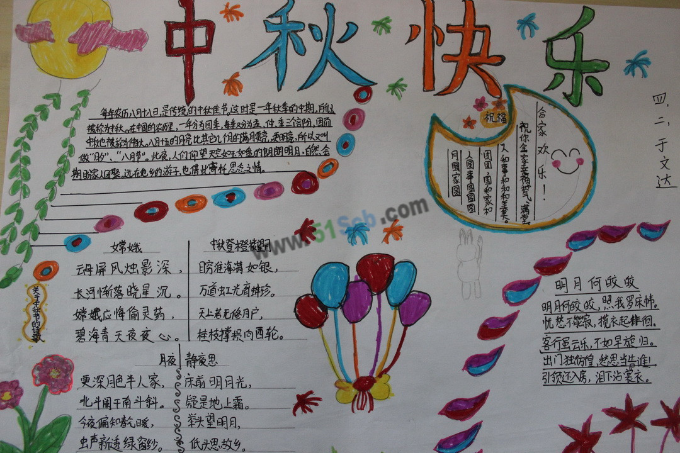 中秋快乐
四、二、于文达
每年农历八月十八日,是传统的中秋佳节,这时是一年秋季的中期,所以
被称为中秋。在中国的农历里,一年分为四季,每季又分为孟、仲、季三个部分,因而
中秋也
八月十五的月亮比其它几个月的满月更圆,更明亮,所以又叫
做"月夕","八月节"。此夜,人们仰望天空如玉如盘的朗朗明月,自然会
期盼家人团聚,远在他乡的游子,也借此寄托
思念之情。
祝福
合家欢乐!
祝你全家幸福
人和事和
国圆家圆
人圆事圆
月圆家圆
www.61Scb.com
关于中秋节的诗歌
嫦娥
云母屏风烛影深,
长河渐落晓星沉。
嫦娥应悔偷灵药,
碧海青天夜夜心。
中秋登楼望月
目穷淮海
如银,
万道虹光
蚌珍。
天上若无修月户,
桂枝撑损向西轮。
月夜
更深月色半人家,
北斗阑干南斗斜。
今夜偏知春
暖,
虫声新透绿窗纱。
静夜思
床前明月光,
疑是地上霜。
举头望明月,
低头思故乡。
明月何皎皎
明月何皎皎,照我罗床帏。
忧愁不能寐,揽衣起徘徊。
客行虽云乐,不如早旋归。
出门独彷徨,愁思当告谁!
引领还入房,泪下沾裳衣。